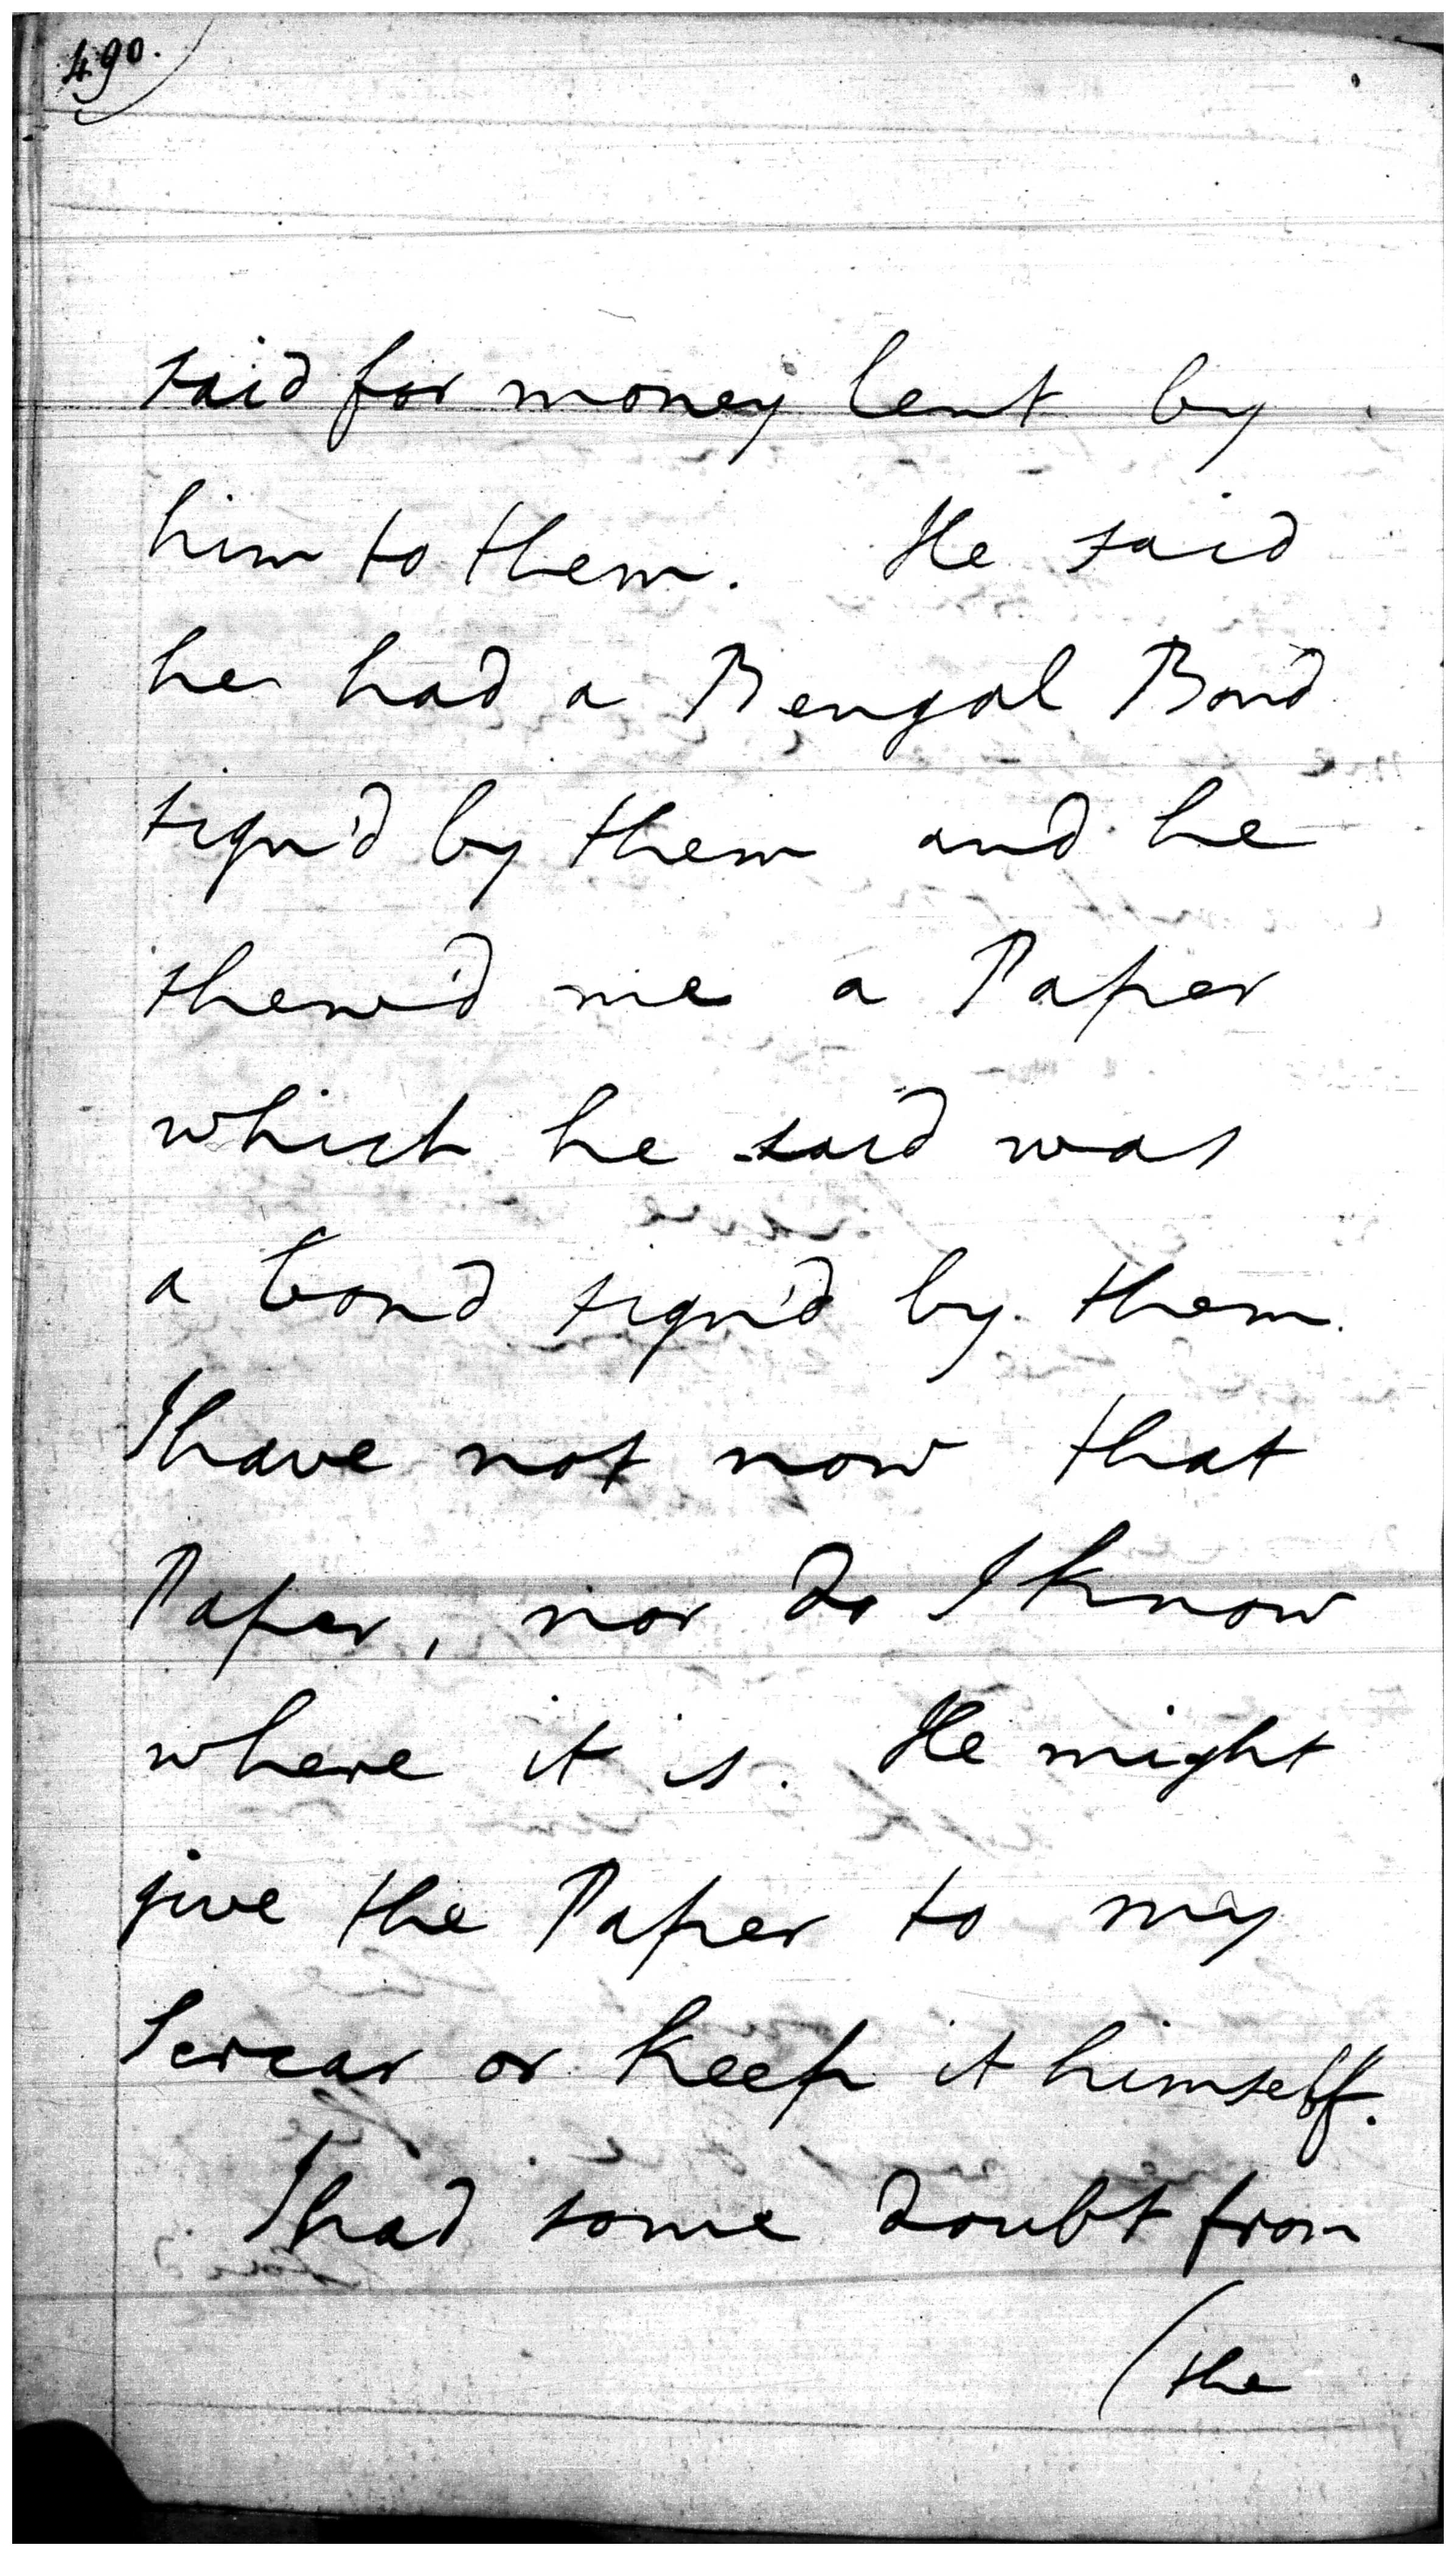 490.
said for money lent by
him to them. He said
he had a Bengal Bond
sign'd by them and he
shew'd me a Paper
which he said was
a bond sign'd by them.
I have not now that
Paper, nor do I know
where it is. He might
give the Paper to my
Sercar or keep it himself.
I had some doubt from
(the